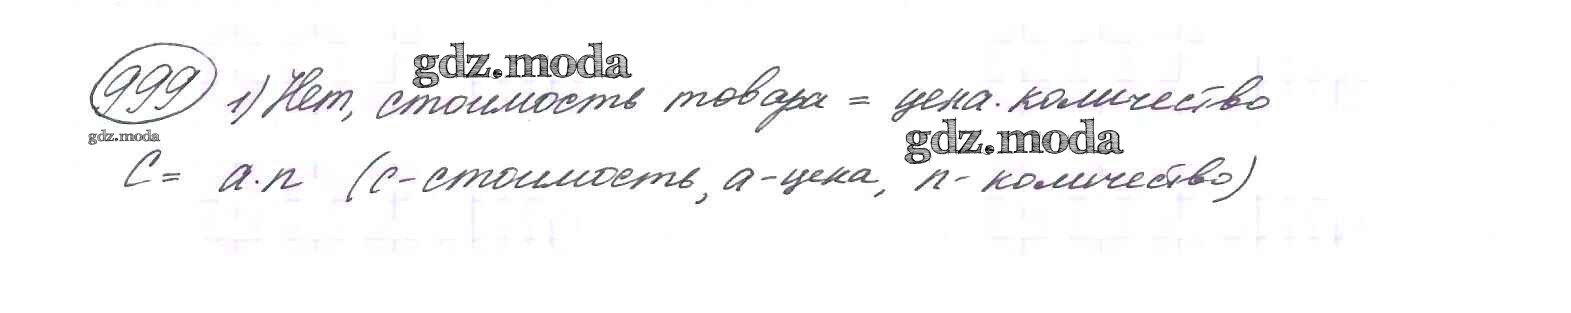 gdz.moda
999 1) Нет, стоимость товара = цена · количество
gdz.moda
gdz.moda
C = a · n (c - стоимость, a - цена, n - количество)